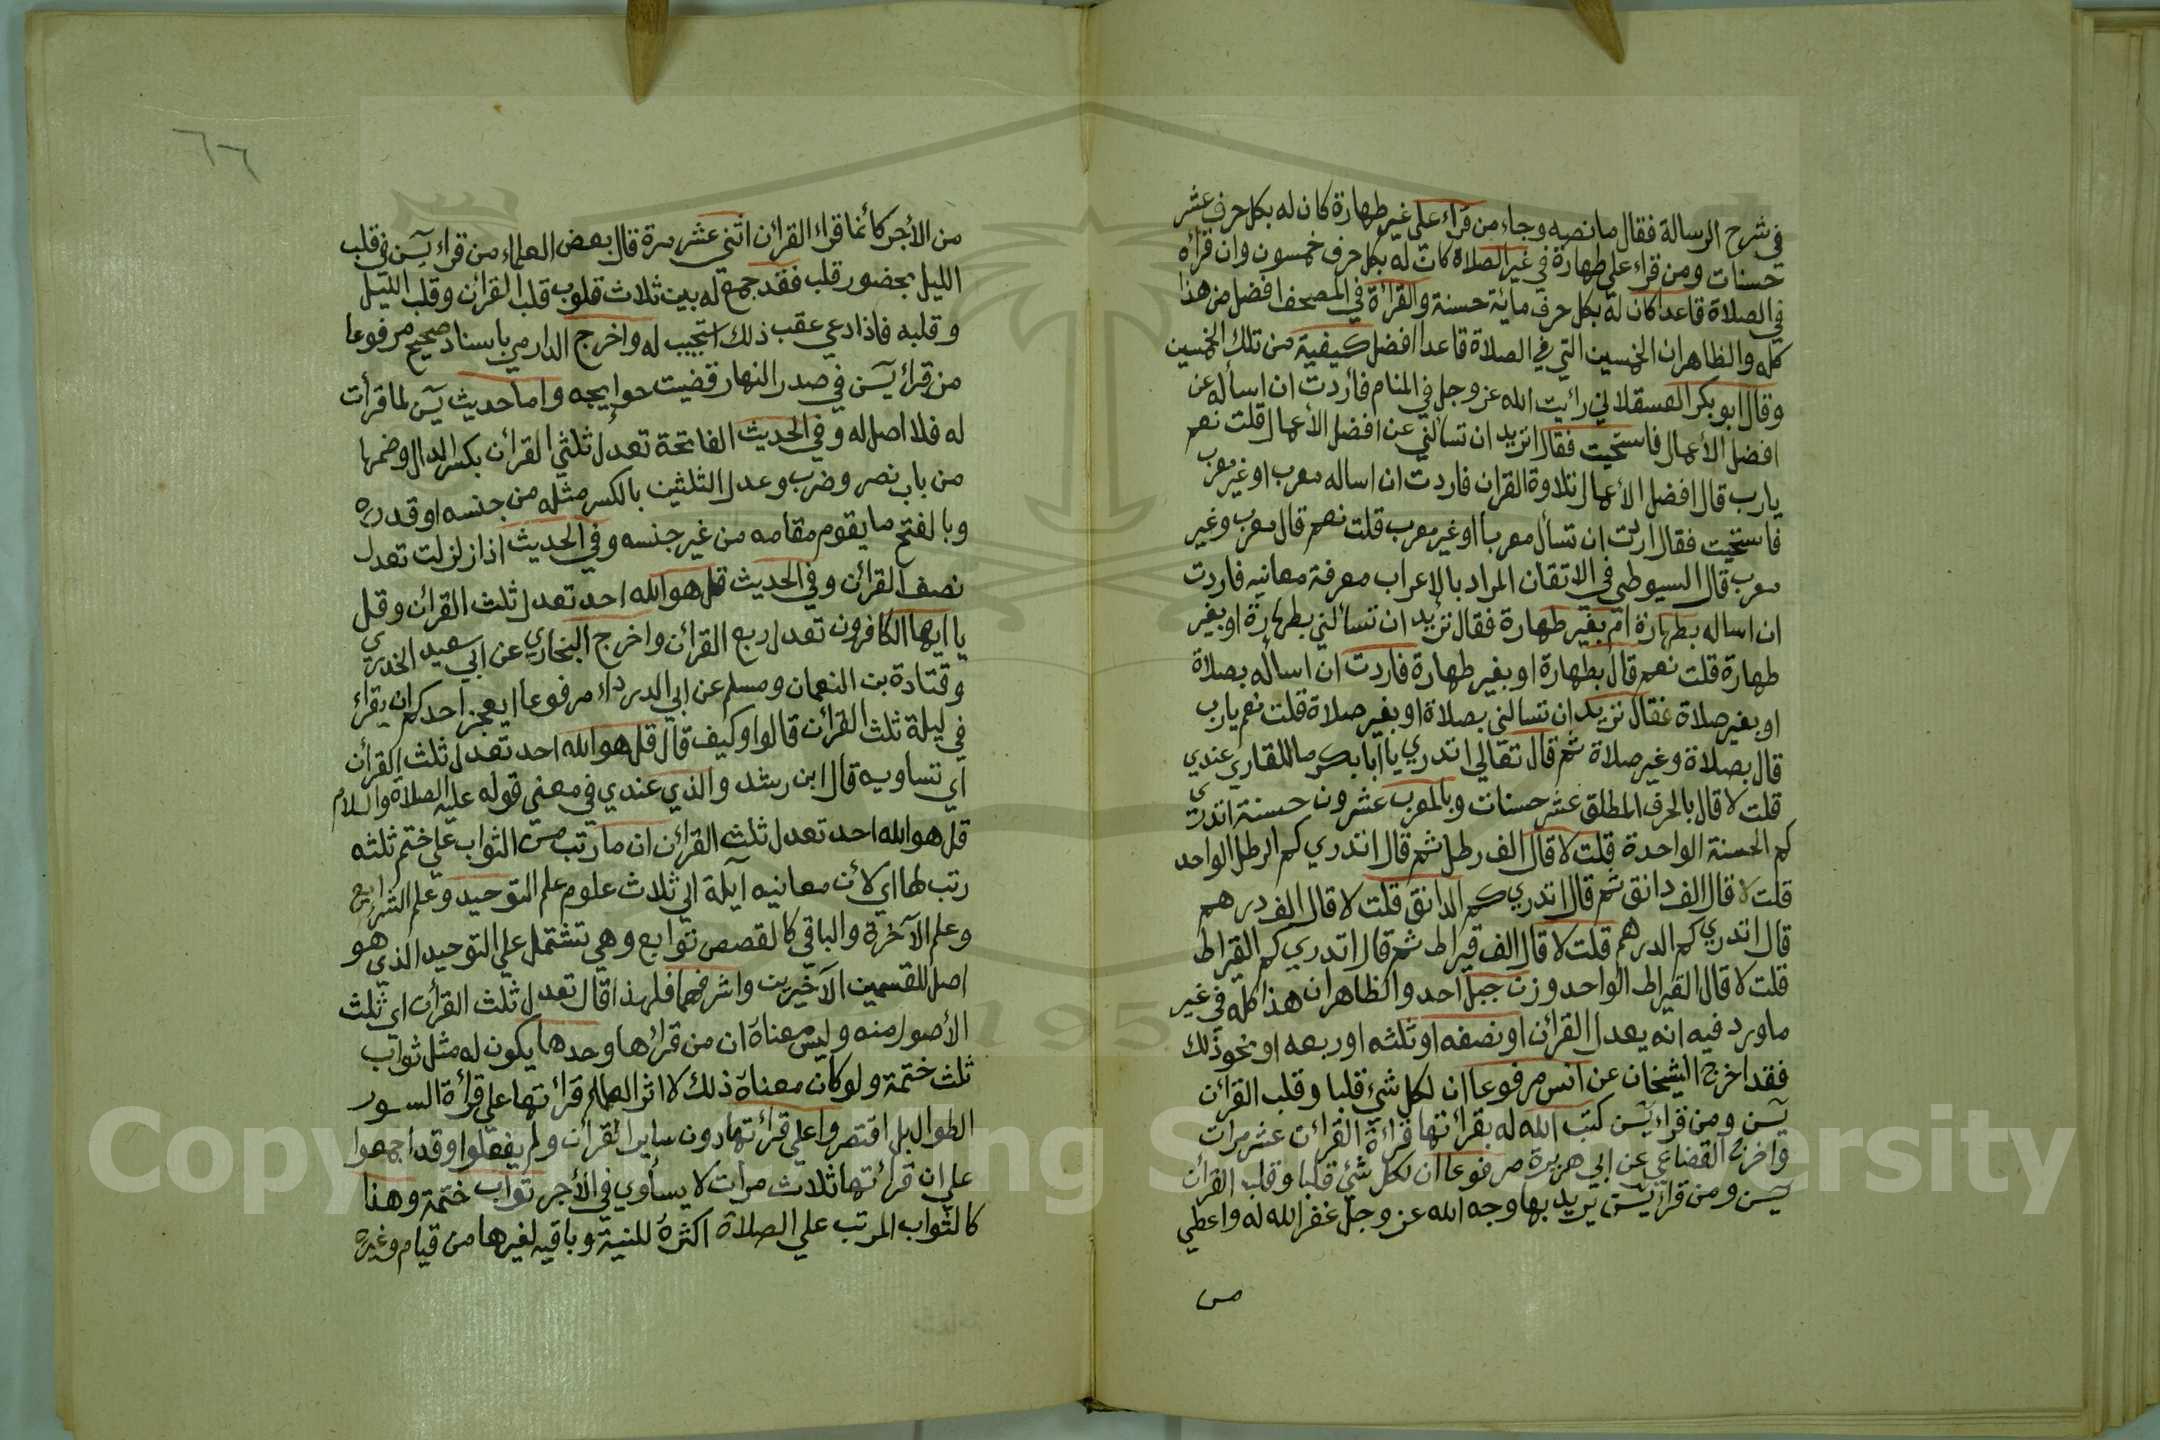 في شرح الرسالة فقال ما نصه وجاء من قراء علي غير طهارة كان له بكل حرف عشر
حسنات ومن قراء علي طهارة في غير الصلاة كانت له بكل حرف خمسون وان قرأه
في الصلاة قاعدا كان له بكل حرف مائة حسنة والقرأة في المصحف افضل من هذا
كله والظاهر ان الخمسين التي في الصلاة قاعدا افضل كيفية من تلك الخمسين
وقال ابو بكر العسقلاني رأيت الله عز وجل في المنام فأردت ان اسأله عن
افضل الأعمال فاستحيت فقال اتريد ان تسألني عن افضل الأعمال قلت نعم
يارب قال افضل الأعمال تلاوة القران فاردت ان اساله معرب او غير معرب
فاستحيت فقال اردت ان تسأل معربا او غير معرب قلت نعم قال معرب وغير
معرب قال السيوطي في الاتقان المراد بالإعراب معرفة معانيه فاردت
ان اساله بطهارة ام بغير طهارة فقال تريد ان تسألني بطهارة او بغير
طهارة قلت نعم قال بطهارة او بغير طهارة فاردت ان اسأله بصلاة
او بغير صلاة فقال تريد ان تسالني بصلاة او بغير صلاة قلت نعم يارب
قال بصلاة وغير صلاة ثم قال تعالي اتدري يا أبا بكر ما للقاري عندي
قلت لا قال بالحرف المطلق عشر حسنات وبالمعرب عشرون حسنة اتدري
كم الحسنة الواحدة قلت لا قال الف رطل ثم قال اتدري كم الرطل الواحد
قلت لا قال الف دانق ثم قال اتدري كم الدانق قلت لا قال الف درهم
قال اتدري كم الدرهم قلت لا قال الف قيراط ثم قال اتدري كم القيراط
قلت لا قال القيراط الواحد وزن جبل احد والظاهر ان هذا كله في غير
ما ورد فيه انه يعدل القرأن او نصفه او ثلثه او ربعه او نحو ذلك
فقد اخرج الشيخان عن انس مرفوعا ان لكل شيء قلبا وقلب القرأن
يسن ومن قراء يسن كتب الله له بقرأتها قراءة القرأن عشر مرات
واخرج القضاعي عن ابي هريرة مرفوعا ان لكل شيء قلبا وقلب القرأن
يسن ومن قرأ يسن يريد بها وجه الله عز وجل غفر الله له واعطي
من
٦٦
من الأجر كأنما قراء القرأن اثني عشر مرة قال بعض العلماء من قراء يسن في قلب
الليل بحضور قلب فقد جمع له بين ثلاث قلوب قلب القرأن وقلب الليل
وقلبه فاذا دعي عقب ذلك استجيب له واخرج الدارمي باسناد صحيح مرفوعا
من قرأ يسن في صدر النهار قضيت حوايجه واما حديث يسن لما قرأت
له فلا اصل له وفي الحديث الفاتحة تعدل ثلثي القرأن بكسر الدال وضمها
من باب نصر وضرب وعدل الثلثين بالكسر مثله من جنسه او قدره
وبالفتح ما يقوم مقامه من غير جنسه وفي الحديث اذا زلزلت تعدل
نصف القرأن وفي الحديث قل هو الله احد تعدل ثلث القرأن وقل
يا ايها الكافرون تعدل ربع القرأن واخرج البخاري عن ابي سعيد الخدري
وقتادة بن النعمان ومسلم عن ابي الدرداء مرفوعا ايعجز احدكم ان يقراء
في ليلة ثلث القرأن قالوا وكيف قال قل هو الله احد تعدل ثلث القرأن
اي تساويه قال ابن رشد والذي عندي في معنى قوله عليه الصلاة والسلام
قل هو الله احد تعدل ثلث القرأن ان ما رتب من الثواب علي ختم ثلثه
رتب لها اي لأن معانيه آيلة الي ثلاث علوم علم التوحيد وعلم الشرايع
وعلم الآخرة والباقي كالقصص توابع وهي تشتمل علي التوحيد الذي هو
اصل للقسمين الآخيرين واشرفهما فلهذا قال تعدل ثلث القرأن اي ثلث
الأصول منه وليس معناة ان من قرأها وحدها يكون له مثل ثواب
ثلث ختمة ولو كان معناة ذلك لاثر العلماء قرائتها علي قرأة السور
الطوال بل اقتصروا علي قرأتها دون ساير القرأن ولم يفعلوا وقد اجمعوا
علي ان قرأتها ثلاث مرات لا يساوي في الأجر ثواب ختمة وهذا
كالثواب المرتب علي الصلاة اكثره للنية وباقيه لغيرها من قيام وغيره
Copyright King Saud University
1957